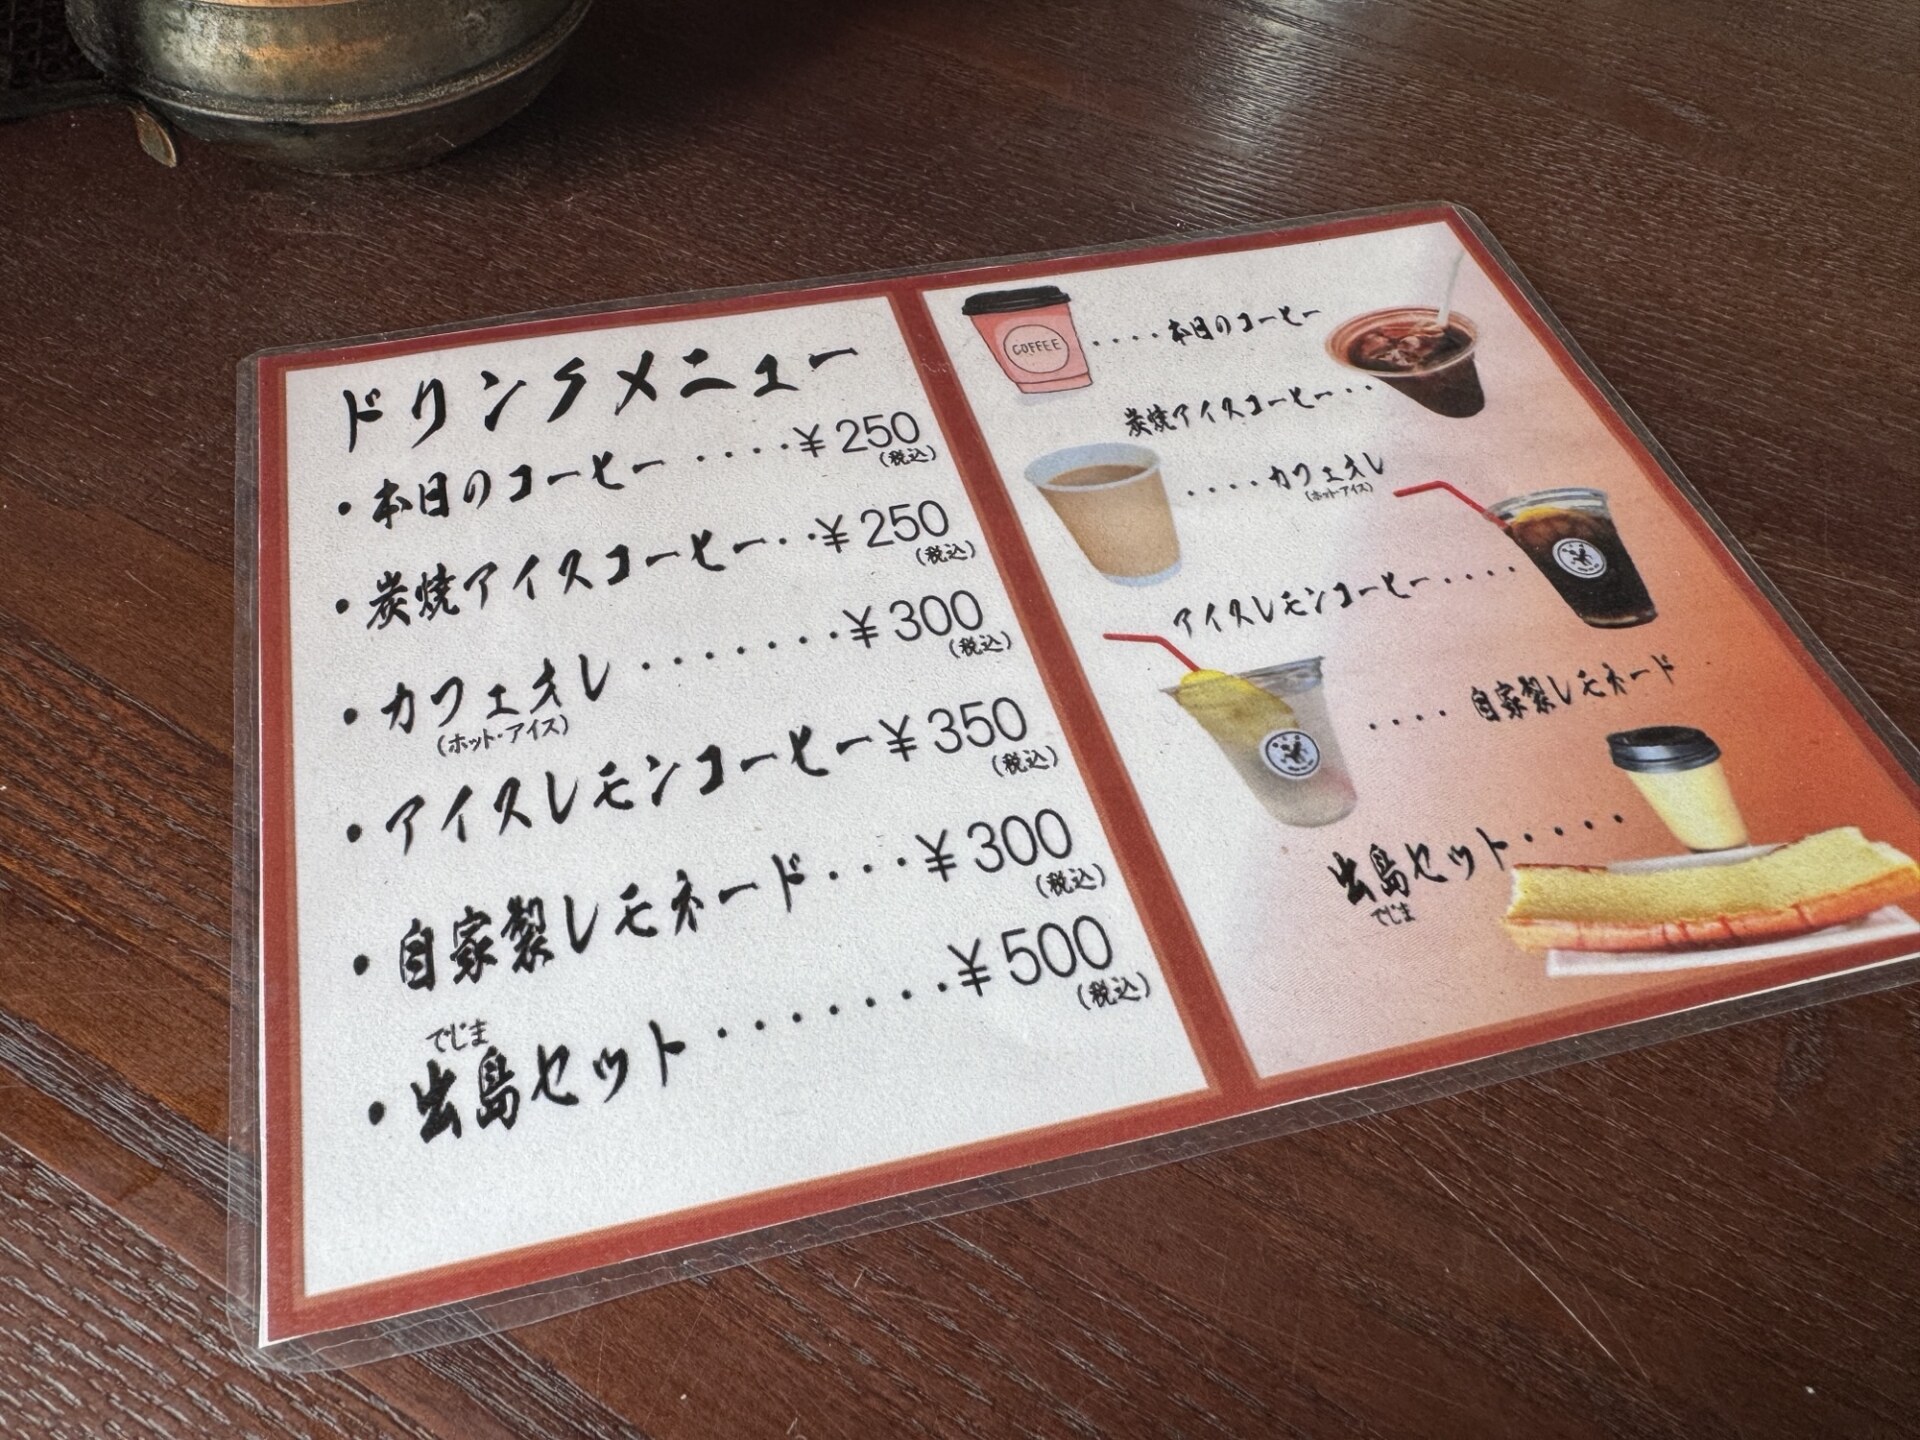 ドリンクメニュー
・本日のコーヒー ‥‥¥250
(税込)
・炭焼アイスコーヒー‥¥250
(税込)
・カフェオレ ‥‥‥‥¥300
(税込)
(ホット・アイス)
・アイスレモンコーヒー¥350
(税込)
・自家製レモネード‥‥¥300
(税込)
でじま
・出島セット‥‥‥‥¥500
(税込)
COFFEE
‥‥本日のコーヒー
炭焼アイスコーヒー‥
‥‥カフェオレ
(ホット・アイス)
アイスレモンコーヒー‥‥
‥‥自家製レモネード
出島セット‥‥
でじま